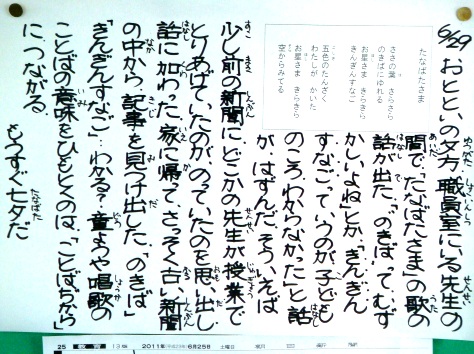 6/29
おとといの夕方、職員室にいる先生の
間で「たなばたさま」の歌の
話が出た。「のきばって、むず
かしいよね」とか「きんぎん
すなごっていうのが子ども
のころ、わからなかった」と話
がはずんだ。そういえば
少し前の新聞に、どこかの先生が授業で
とりあげていたのがのっていたのを思い出し
話に加わった。家に帰って、さっそく古い新聞
の中から、記事を見つけ出した。「のきば」
「きんぎんすなご」…わかる?童ようや唱歌の
ことばの意味をひもとくのは、「ことばぢから」
に、つながる。
もうすぐ七夕だ
たなばたさま
ささの葉 さらさら
のきばにゆれる
お星さま きらきら
きんぎんすなご
五色のたんざく
わたしが かいた
お星さま きらきら
空からみてる
25 教育 13版 2011年(平成23年)6月25日 土曜日